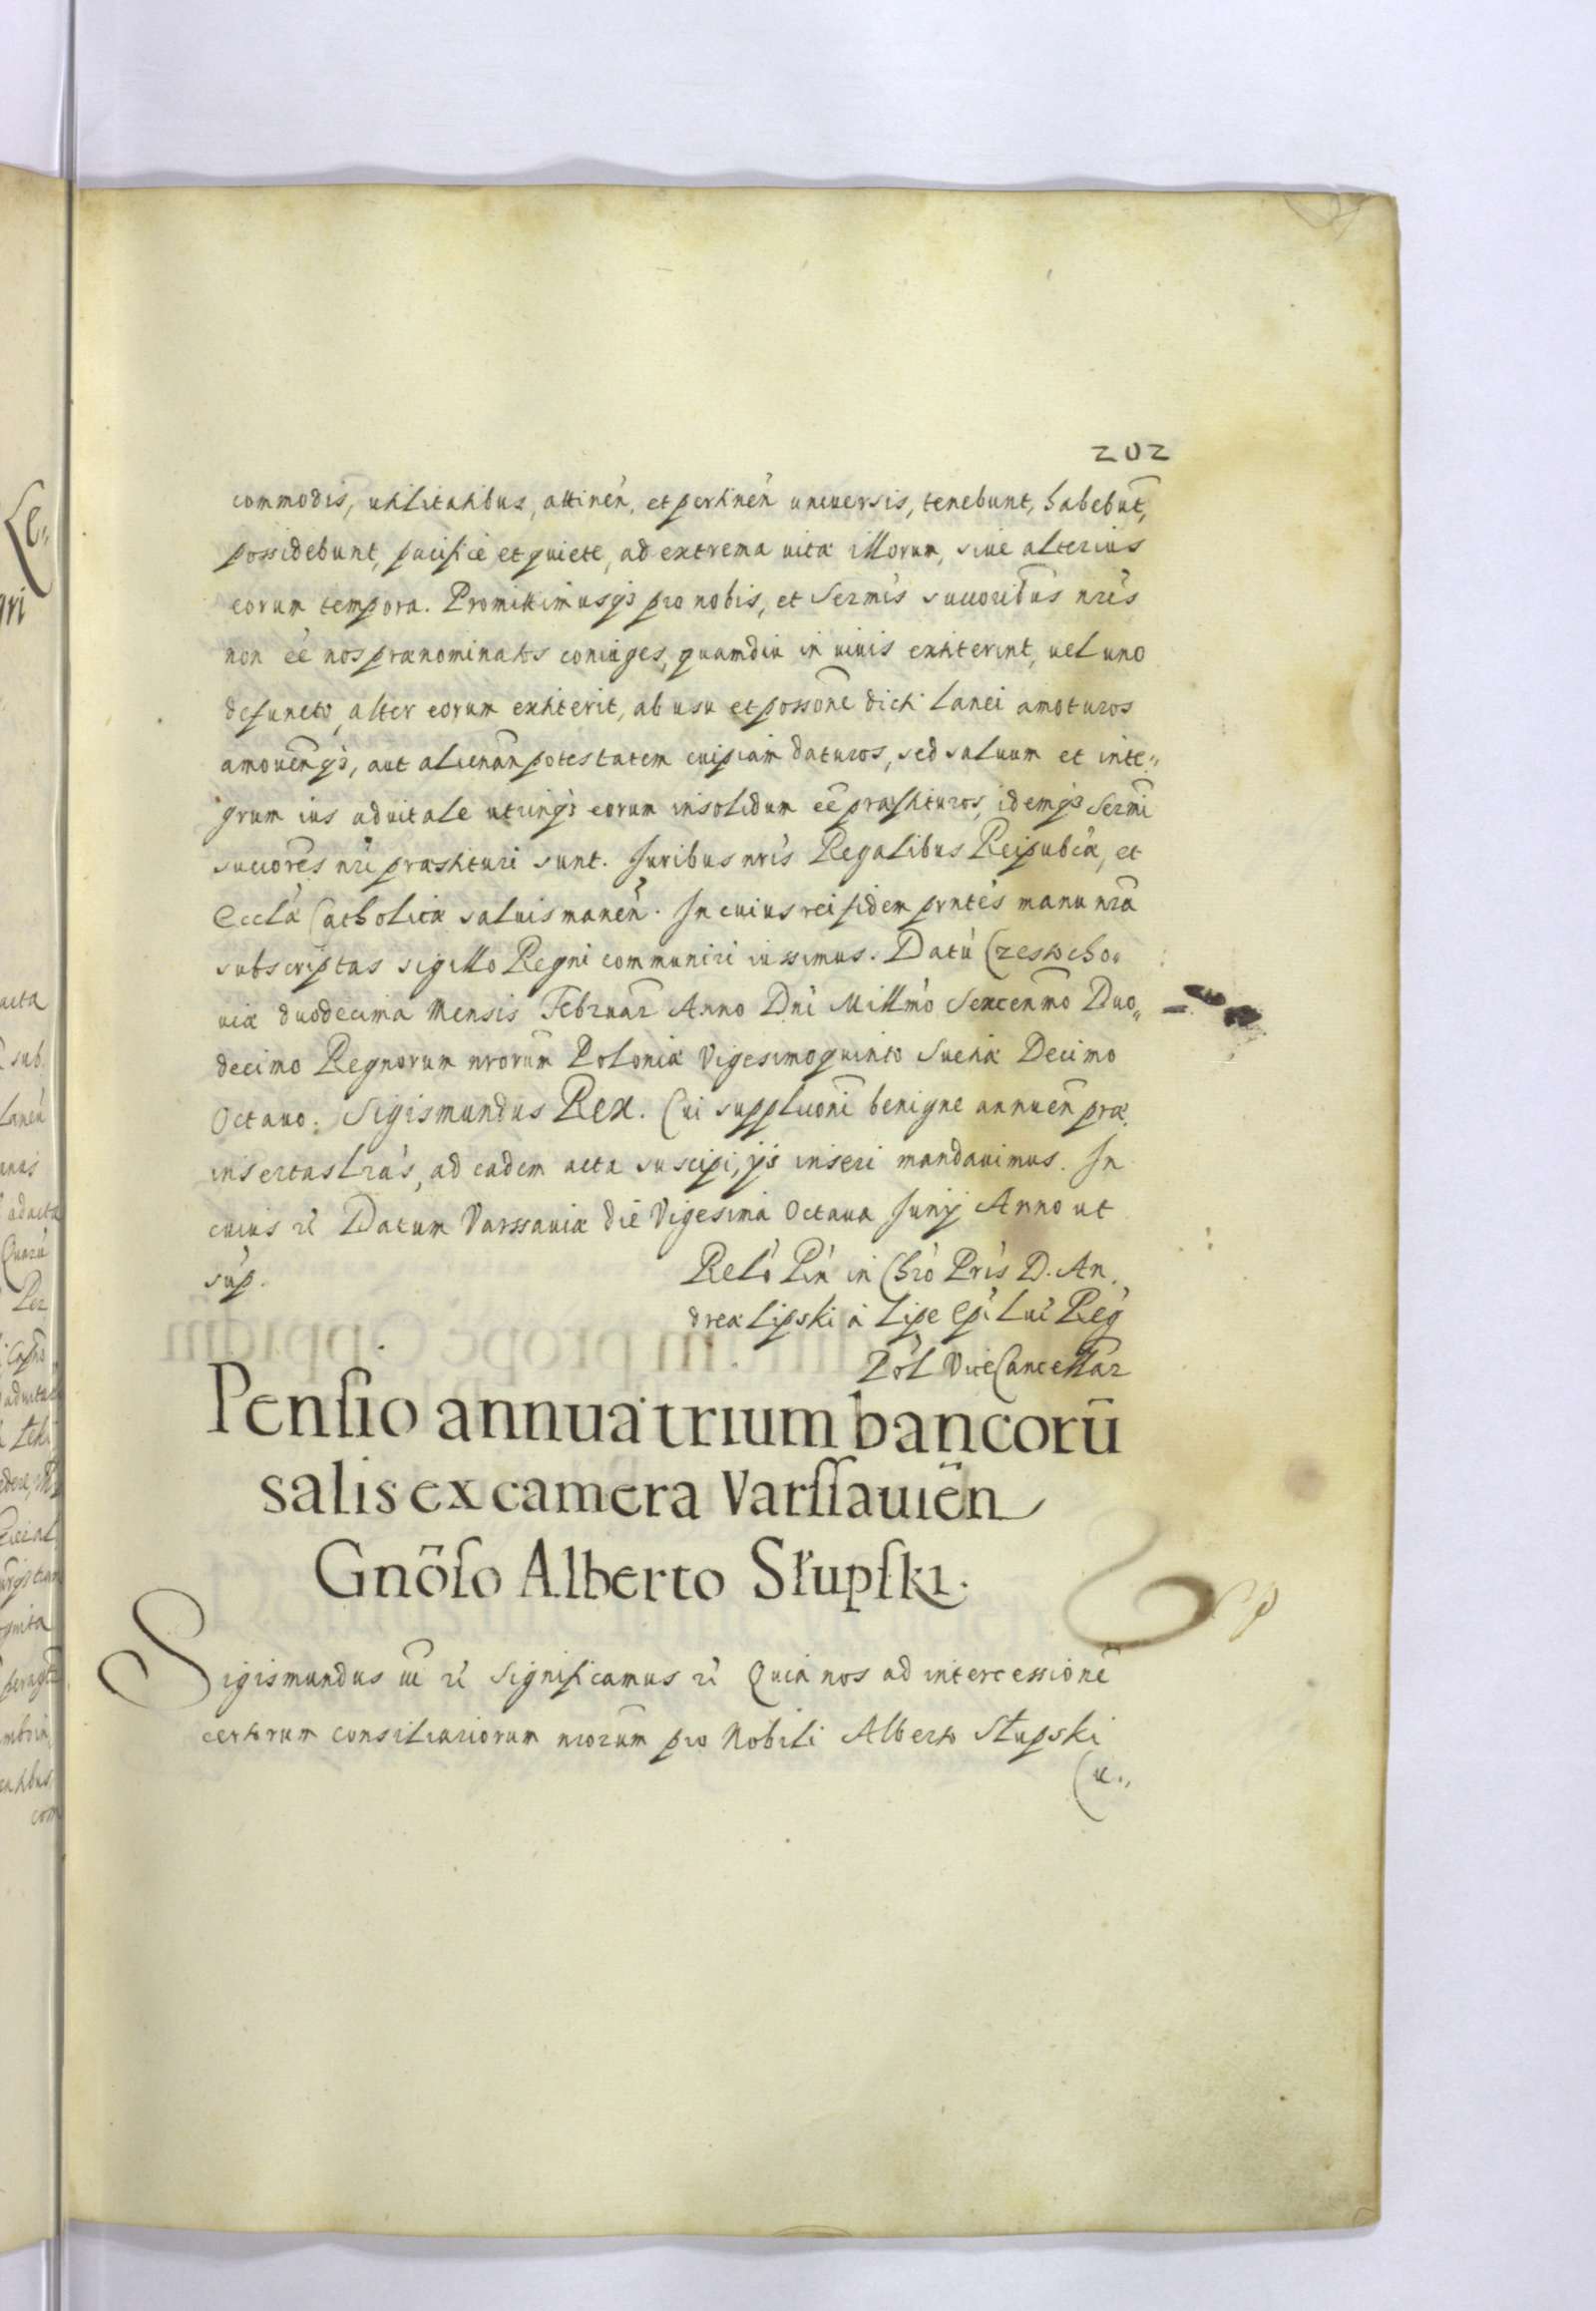 202
commodis, utilitatibus, attineñ, et pertineñ uniuersis, tenebunt, habebūt,
possidebunt, pacificè et quiete, ad extrema uitæ illorum, siue alterius
eorum tempora. Promittimusq3 pro nobis, et Sermis succoribus nris
non ee nos prænominatos coniuges, quamdiu in uiuis extiterint, uel uno
defuncto, alter eorum extiterit, ab usu et possone dicti Lanei amoturos
amouenq3, aut alienan potestatem cuipiam daturos, sed saluum et inte„
grum ius aduitale utriusq3 eorum insolidum ee præstituros, idemq3 Sermi
succores nri præstituri sunt. Juribus nris Regalibus Reipubcæ, et
Ecclæ Catholicæ saluis maneñ. In cuius rei fidem prntes manu nra
subscriptas sigillo Regni communiri iussimus. Datū Czestocho„
uiæ duodecima Mensis Februar Anno Dni Millmo Sexcenmo Duo„
decimo Regnorum nrorum Poloniæ Vigesimoquinto Sueciæ Decimo
Octauo. Sigismundus Rex. Cui suppliconi benigne annuen præ
insertas Lras, ad eadem acta suscipi, ijs inseri mandauimus. In
cuius rei Datum Varssauiæ die Vigesima Octaua Junij Anno ut
sup.
Relo Rin in Chro Pris D. An
dreæ Lipski à Lipe Epi Luc Reg
Pol ViceCancellar
Pensio annua trium bancorū
salis ex camera Varssauieñ
Gnōso Alberto Słupski.
Sigismundus III rc Significamus rc Quia nos ad intercessionē
certorum consiliariorum nrorum pro Nobili Alberto Słupski